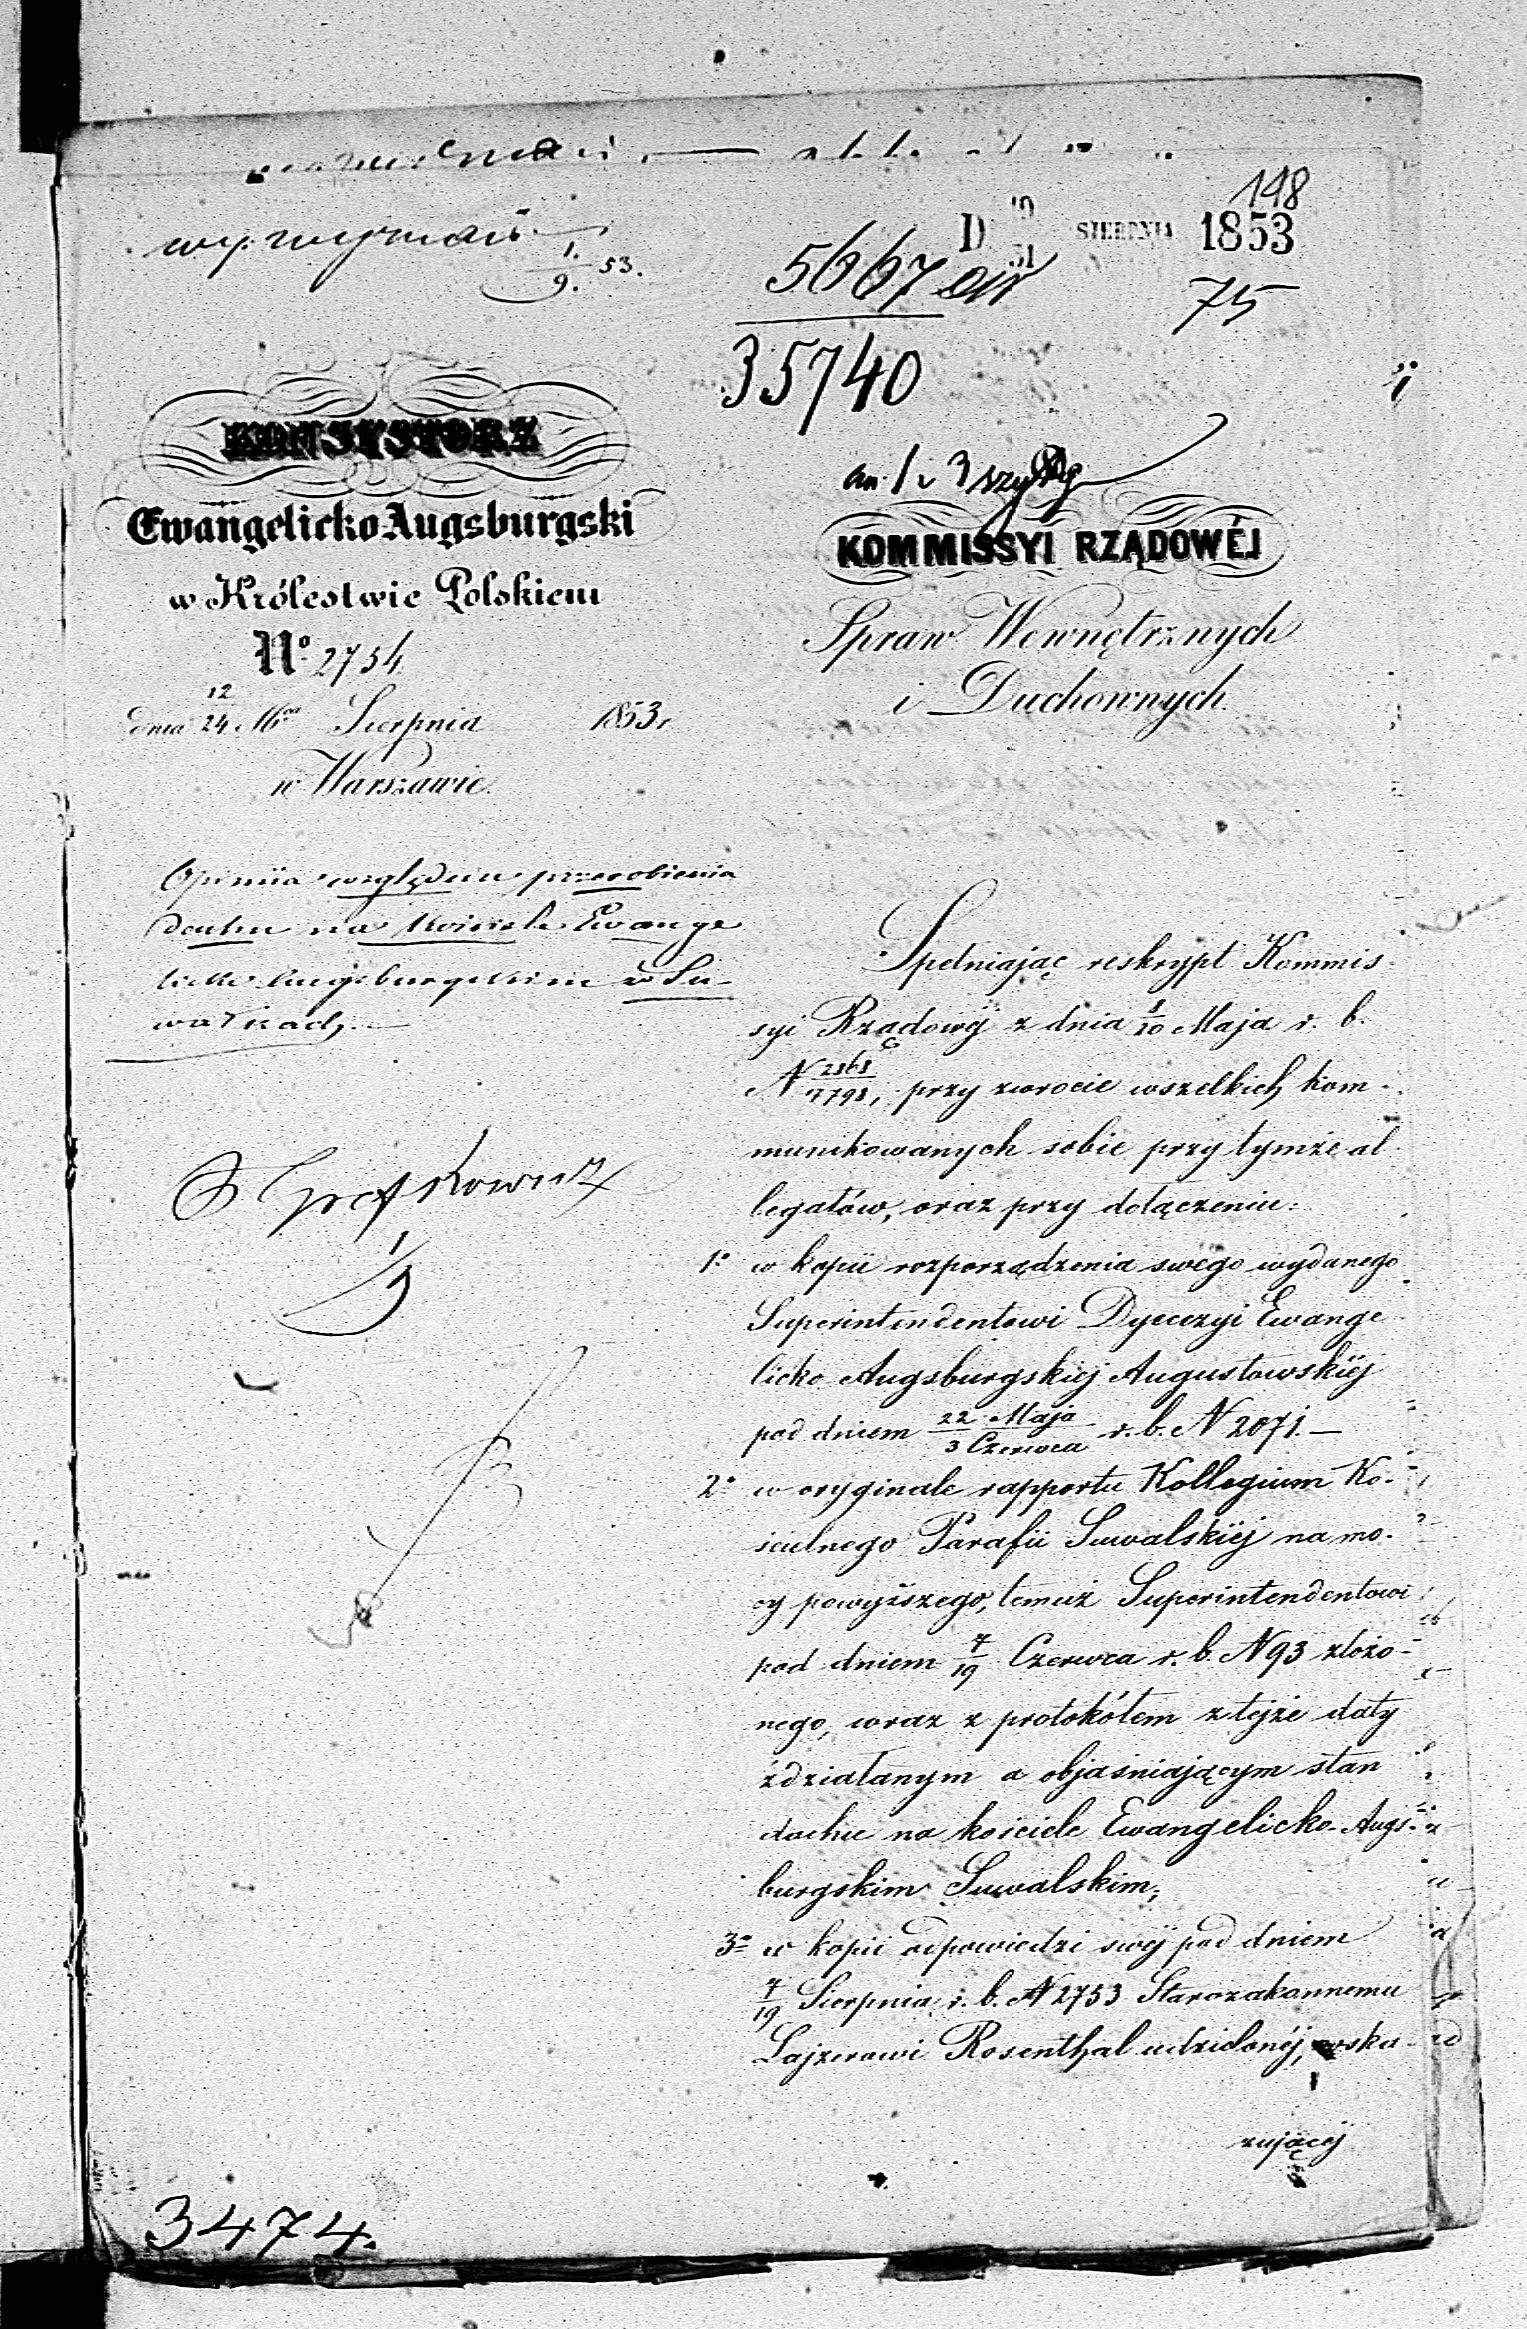 148
D 19/31 SIERPNIA 1853
1./9. 53.
5667
75
35740
KONSYSTORZ
Ewangelicko Augsburgski
w Królestwie Polskiem
No 2754
dnia 12/24 Mca Sierpnia 1853,
w Warszawie.
KOMMISSYI RZĄDOWÉJ
Spraw Wewnętrznych
i Duchownych.
Opiniia względem przerobienia
dachu na kościele Ewange
licko Augsburgskim w Su-
wałkach.
1/9
Spełniając reskrypt Kommis
syi Rządowéj z dnia 8/20 Maja r. b.
N 2868/7798, przy zwrocie wszelkich kom-
munikowanych sobie przy tymże al
legatów, oraz przy dołączeniu:
1o w kopii rozporządzenia swego wydanego
Superintendentowi Dyecezyi Ewange
licko Augsburgskiej Augustowskiéj
pod dniem 22 Maja/3 Czerwca r. b. N 2071.—
2o w oryginale rapportu Kollegium Ko-
scielnego Parafii Suwalskiéj na mo-
cy powyższego, temuż Superintendentowi
pod dniem 7/19 Czerwca r. b. N 93 złożo-
nego, wraz z protokółem z tejże daty
zdziałanym a objaśniającym stan
dachu na kościele Ewangelicko-Augs-
burgskim Suwalskim;
3o w kopii odpowiedzi swéj pod dniem
7/19 Sierpnia r. b. N 2753 Starozakonnemu
Lajzerowi Rosenthal udzielonéj, wska-
zującej
3474.